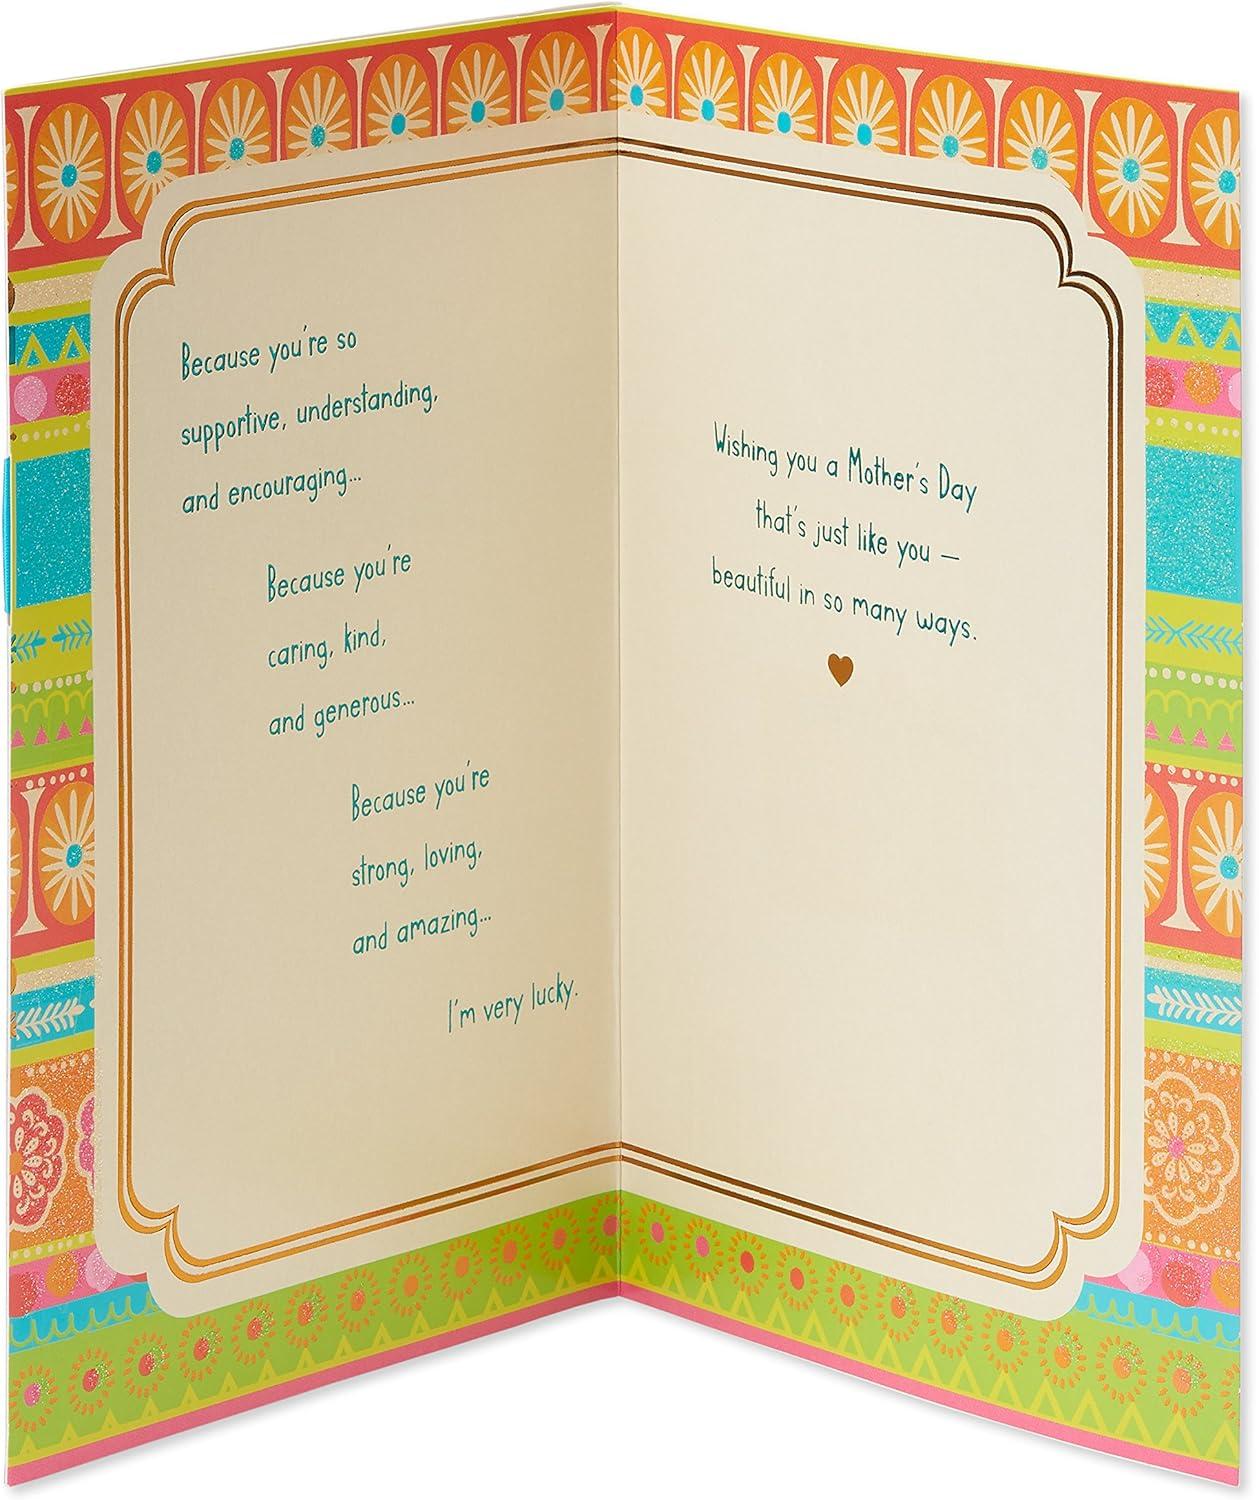 Because you're so
supportive, understanding,
and encouraging...
Because you're
caring, kind,
and generous...
Because you're
strong, loving,
and amazing...
I'm very lucky.
Wishing you a Mother's Day
that's just like you —
beautiful in so many ways.